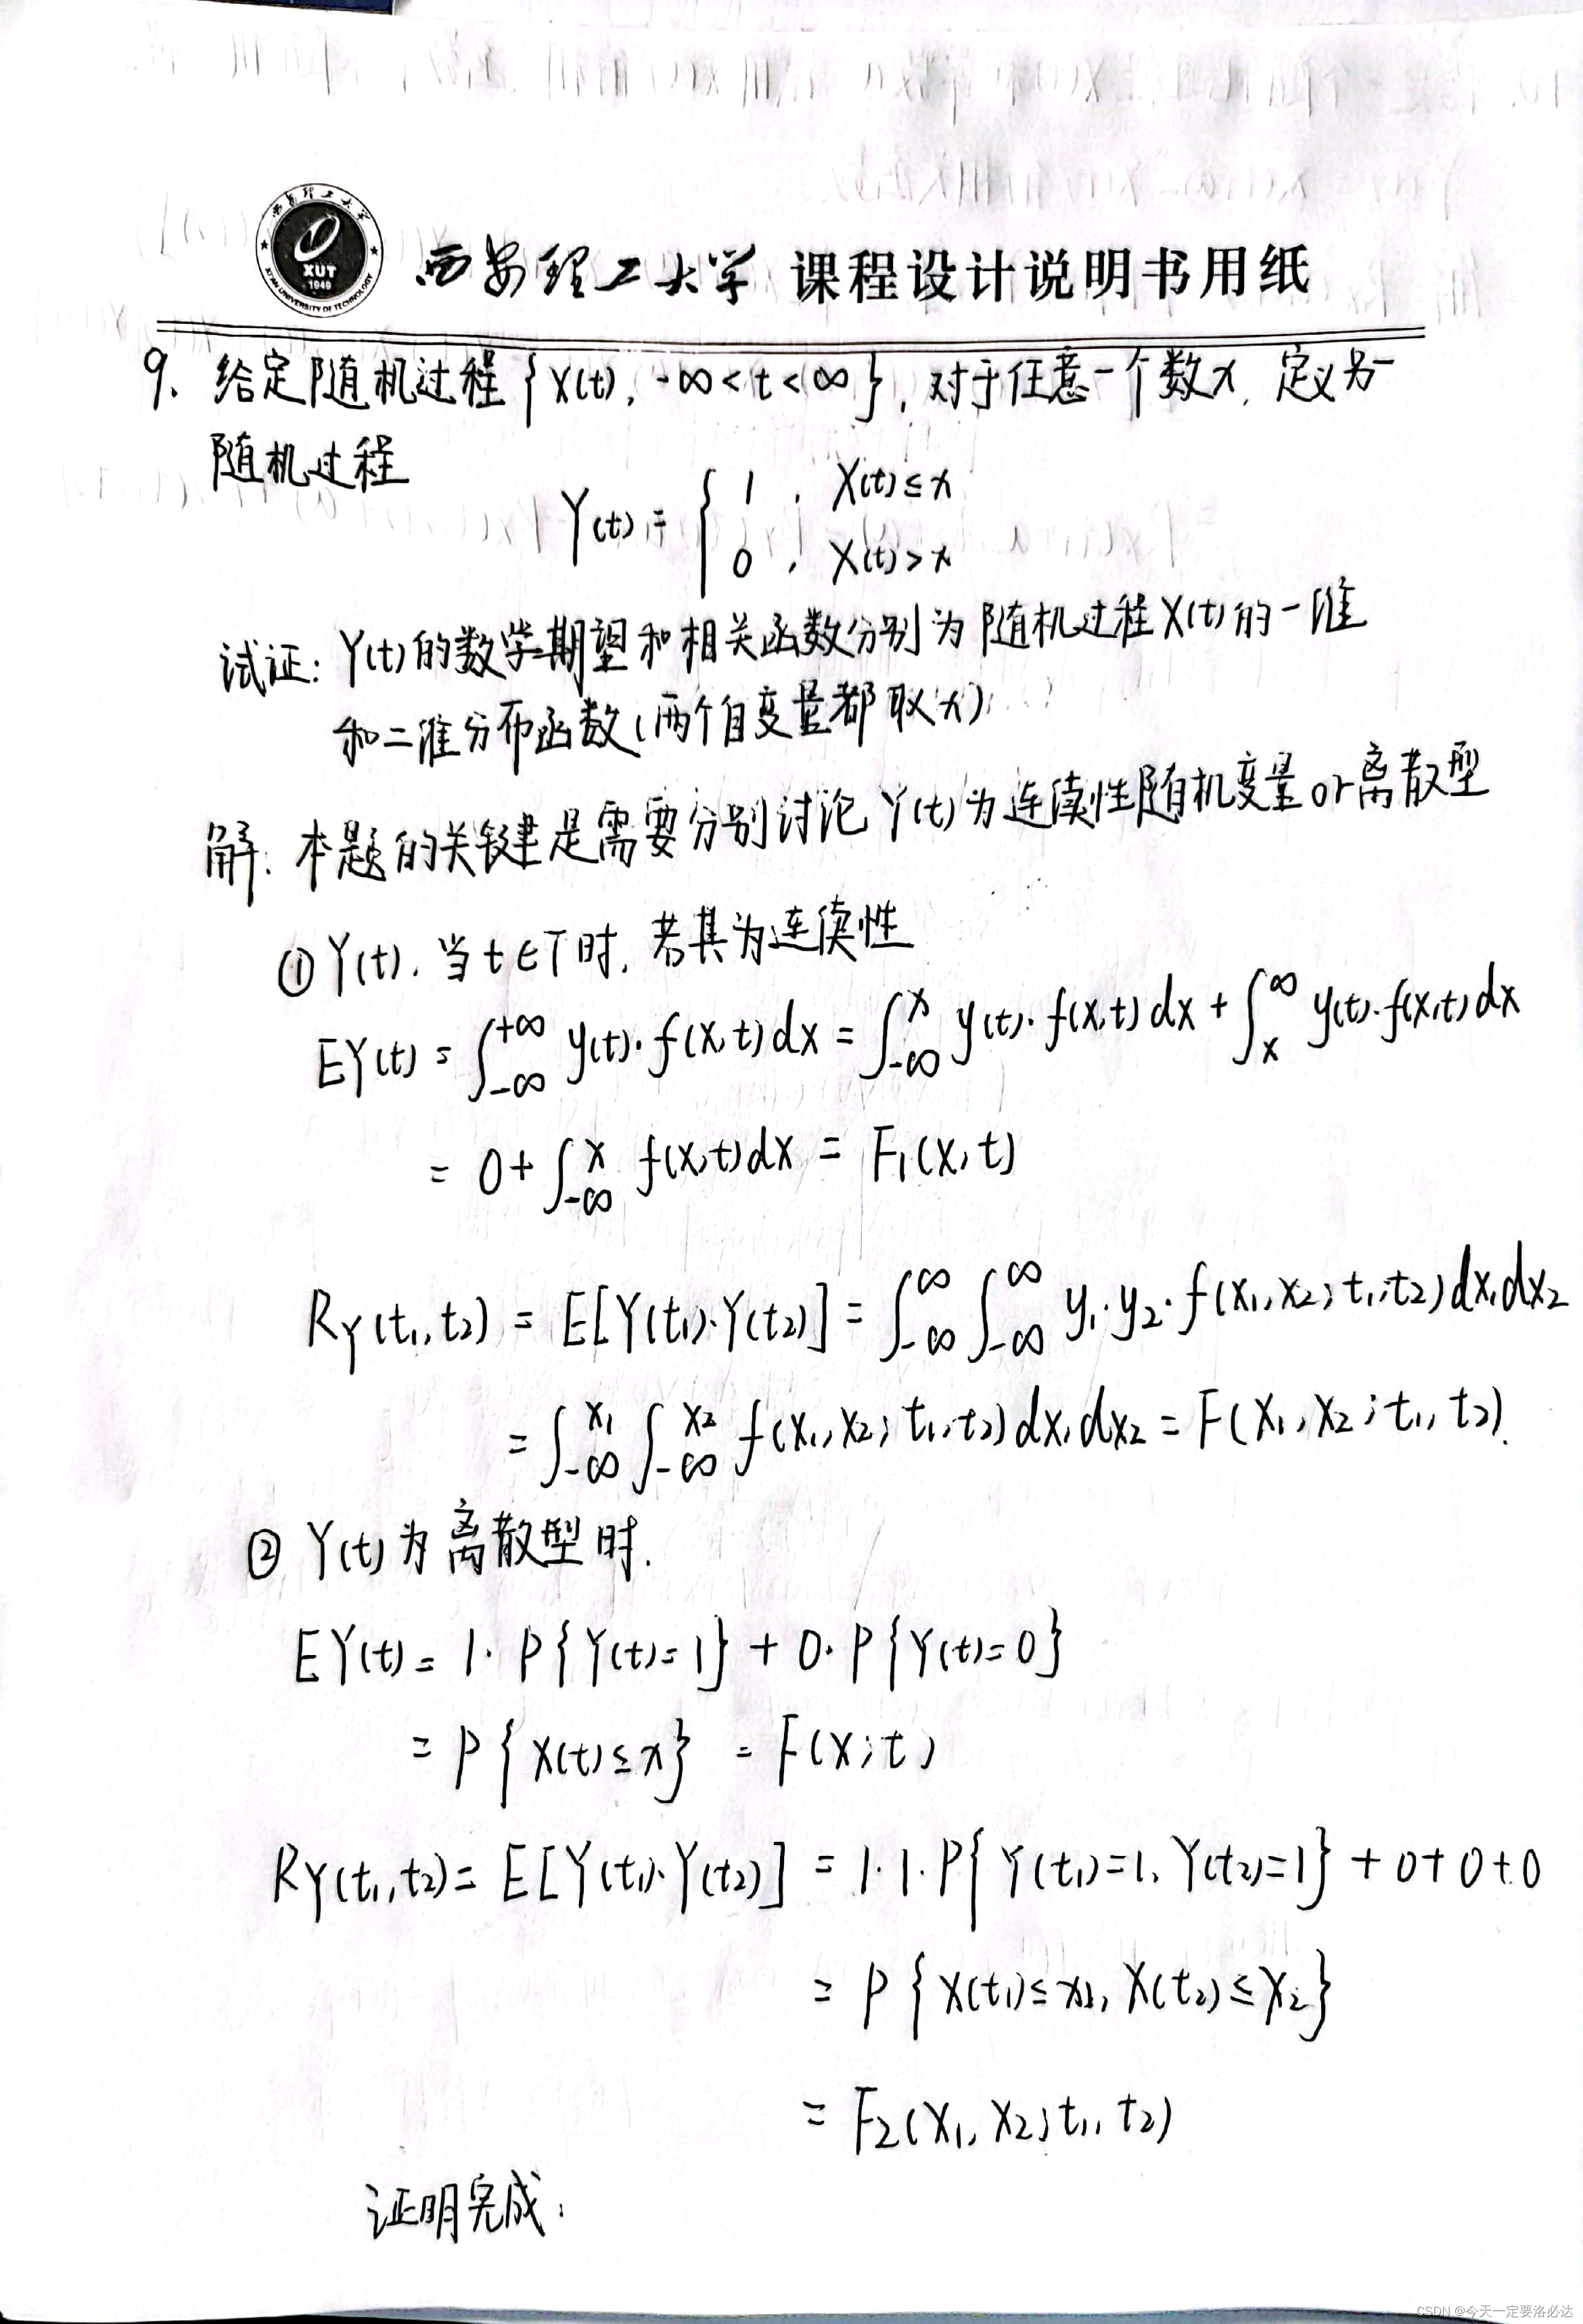 西安理工大学 课程设计说明书用纸
XUT
1949
XI'AN UNIVERSITY OF TECHNOLOGY
9. 给定随机过程{X(t), -∞<t<∞}, 对于任意一个数x, 定义另一
随机过程
Y(t) = { 1 , X(t)≤x
0 , X(t)>x
试证: Y(t)的数学期望和相关函数分别为随机过程X(t)的一维
和二维分布函数(两个自变量都取x)
解: 本题的关键是需要分别讨论Y(t)为连续性随机变量or离散型
① Y(t), 当t∈T时, 若其为连续性
EY(t) = ∫_{-∞}^{+∞} y(t)·f(x,t)dx = ∫_{-∞}^{x} y(t)·f(x,t)dx + ∫_{x}^{∞} y(t)·f(x,t)dx
= 0+∫_{-∞}^{x} f(x,t)dx = F₁(x,t)
R_Y(t₁,t₂) = E[Y(t₁)·Y(t₂)] = ∫_{-∞}^{∞}∫_{-∞}^{∞} y₁·y₂·f(x₁,x₂;t₁,t₂)dx₁dx₂
= ∫_{-∞}^{x₁}∫_{-∞}^{x₂} f(x₁,x₂;t₁,t₂)dx₁dx₂ = F(x₁,x₂;t₁,t₂).
② Y(t)为离散型时.
EY(t) = 1·P{Y(t)=1} + 0·P{Y(t)=0}
= P{X(t)≤x} = F(x;t)
R_Y(t₁,t₂) = E[Y(t₁)·Y(t₂)] = 1·1·P{Y(t₁)=1, Y(t₂)=1} + 0+0+0
= P{X(t₁)≤x₁, X(t₂)≤x₂}
= F₂(x₁,x₂;t₁,t₂)
证明完成.
CSDN @今天一定要洛必达